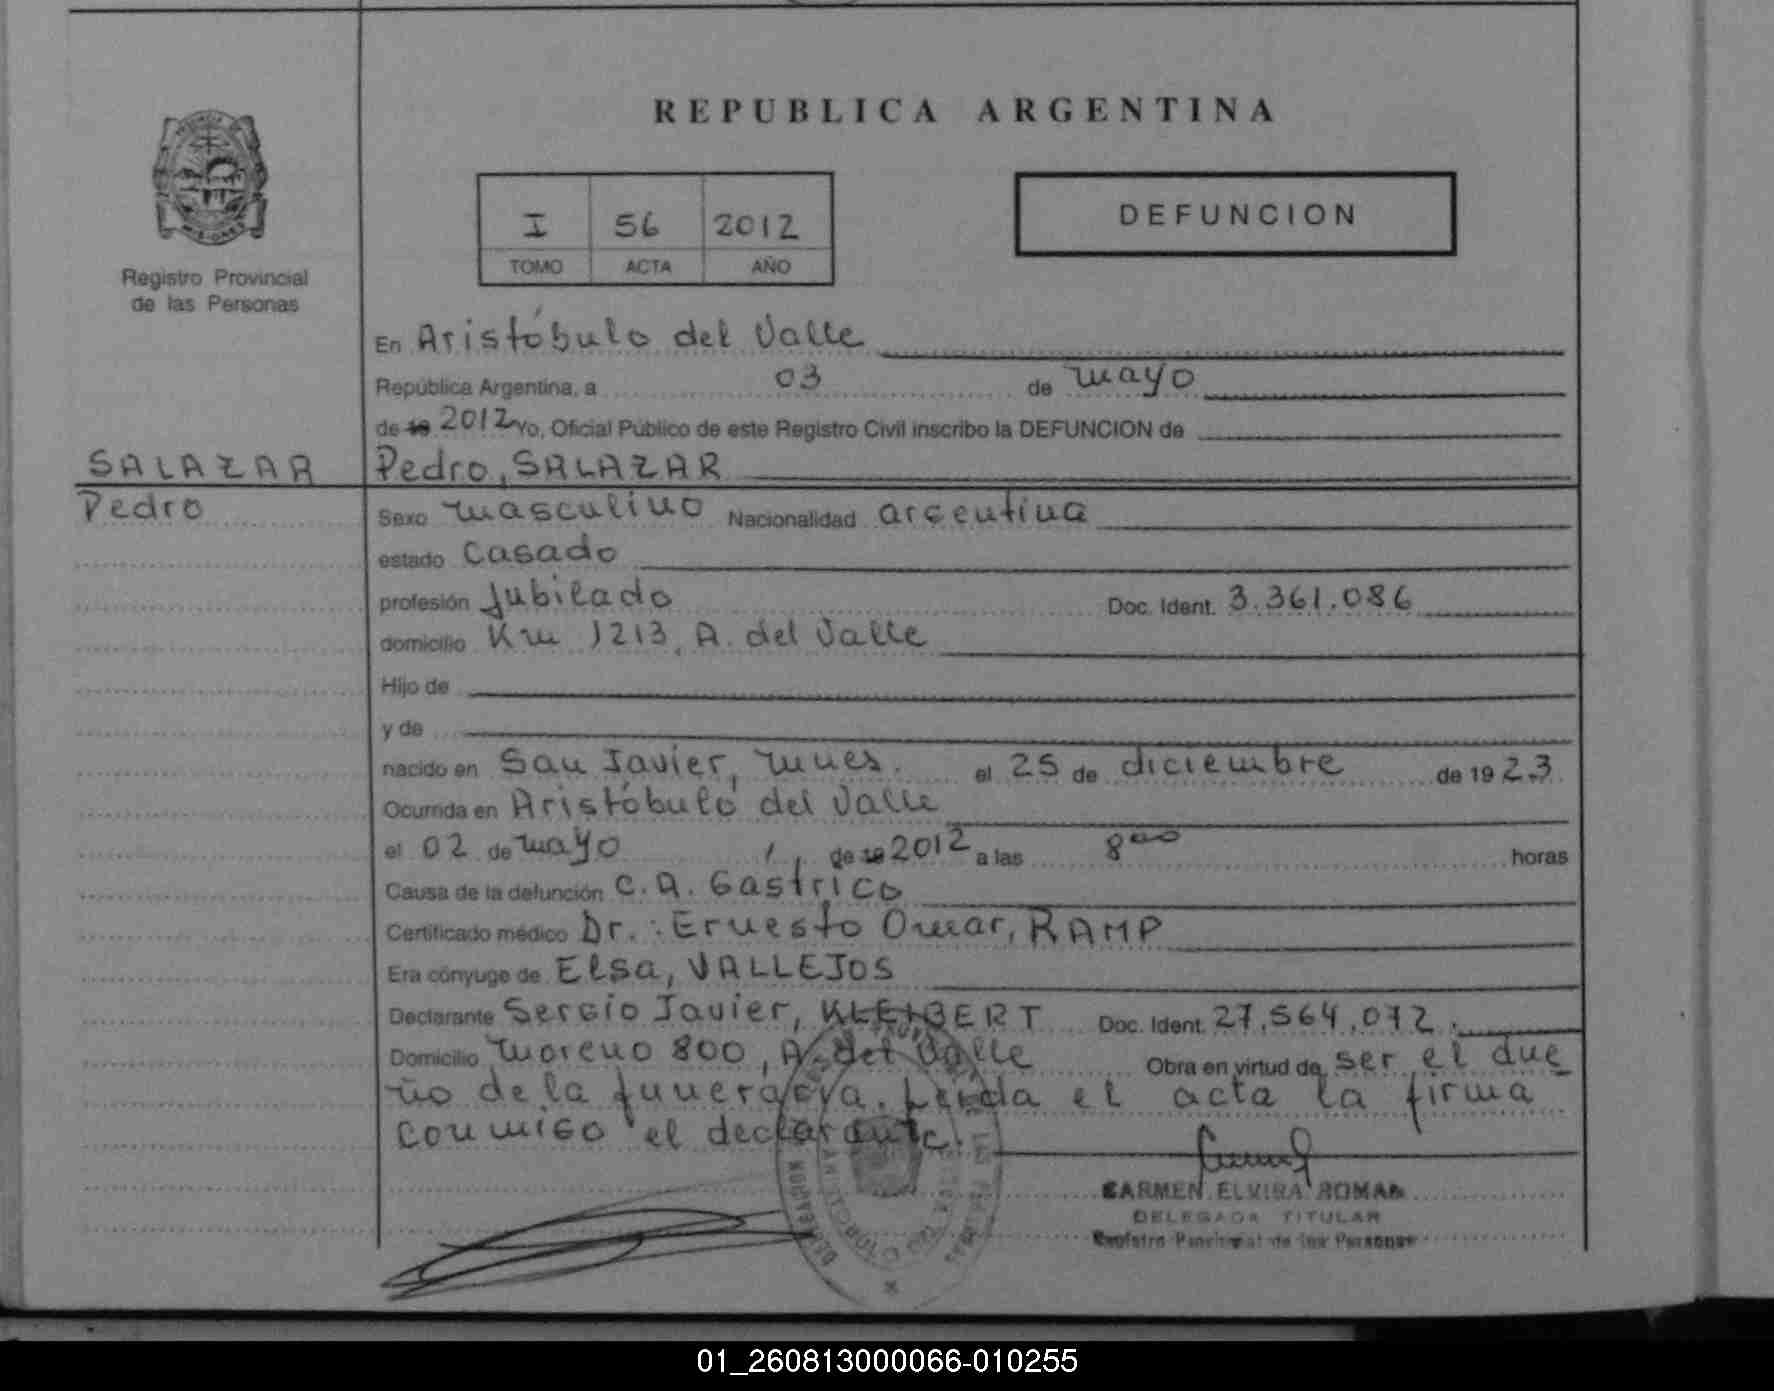 REPUBLICA ARGENTINA
PROVINCIA
MISIONES
Registro Provincial
de las Personas
I 56 2012
TOMO ACTA AÑO
DEFUNCION
En Aristóbulo del Valle
República Argentina, a 03 de mayo
de 19 2012 Yo, Oficial Público de este Registro Civil inscribo la DEFUNCION de
SALAZAR Pedro, SALAZAR
Pedro
Sexo masculino Nacionalidad argentina
estado casado
profesión jubilado Doc. Ident. 3.361.086
domicilio Km 1213, A. del Valle
Hijo de
y de
nacido en San Javier, Mnes. el 25 de diciembre de 19 23
Ocurrida en Aristóbulo del Valle
el 02 de mayo de 19 2012 a las 8 00 horas
Causa de la defunción C.A. Gastrico
Certificado médico Dr.: Ernesto Omar, RAMP
Era cónyuge de Elsa, VALLEJOS
Declarante Sergio Javier, KLEIBERT Doc. Ident. 27.564.072.
Domicilio Moreno 800, A. del Valle Obra en virtud de ser el due
ño de la funeraria. Leida el acta la firma
conmigo el declarante.
CARMEN ELVIRA ROMAN
DELEGADA TITULAR
Registro Provincial de las Personas
01_260813000066-010255